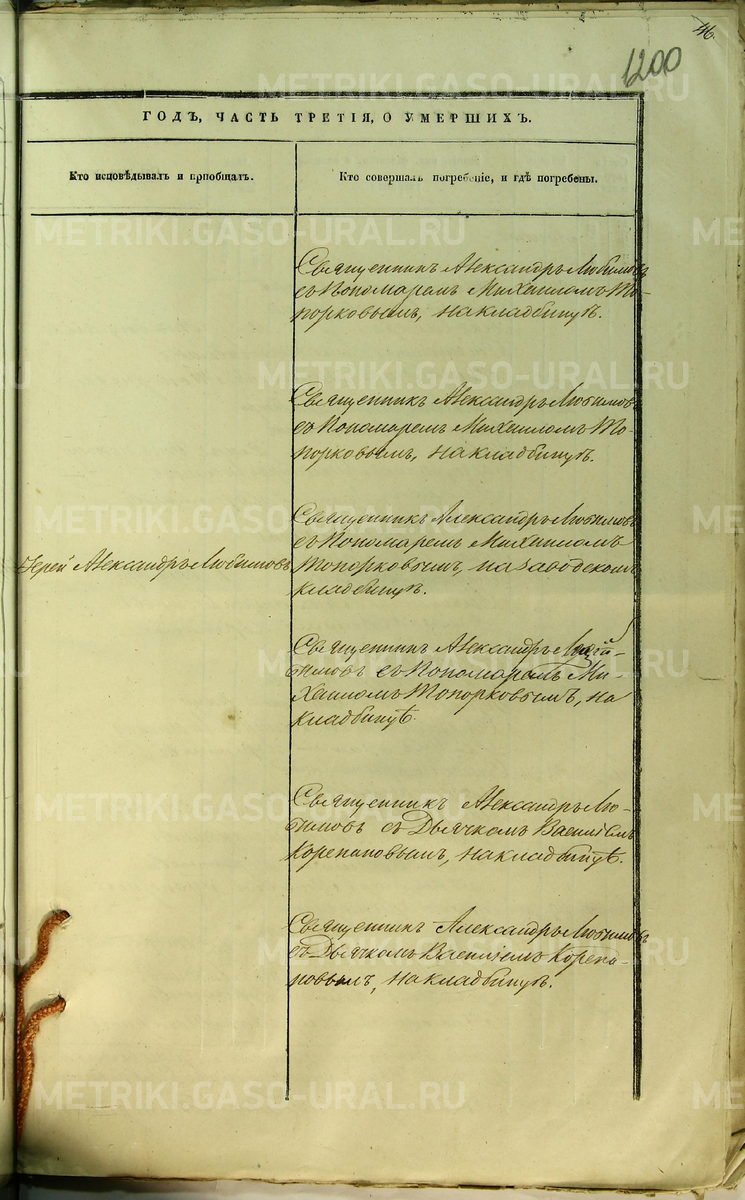 46.
1200
ГОДЪ, ЧАСТЬ ТРЕТІЯ, О УМЕРШИХЪ.
Кто исповѣдывалъ и пріобщалъ.
Кто совершалъ погребеніе, и гдѣ погребены.
Священникъ Александръ Любимовъ
съ Пономаремъ Михаиломъ То-
порковымъ, на кладбищѣ.
Священникъ Александръ Любимовъ
съ Пономаремъ Михаиломъ То-
порковымъ, на кладбищѣ.
Іерей Александръ Любимовъ
Священникъ Александръ Любимовъ
съ Пономаремъ Михаиломъ
Топорковымъ, на заводскомъ
кладбищѣ.
Священникъ Александръ
бимовъ съ Пономаремъ Ми-
хаиломъ Топорковымъ, на
кладбищѣ.
Священникъ Александръ Лю-
бимовъ съ Дьячкомъ Василіемъ
Корепановымъ, на кладбищѣ.
Священникъ Александръ Любимовъ
съ Дьячкомъ Василіемъ Корепа-
новымъ, на кладбищѣ.
METRIKI.GASO-URAL.RU